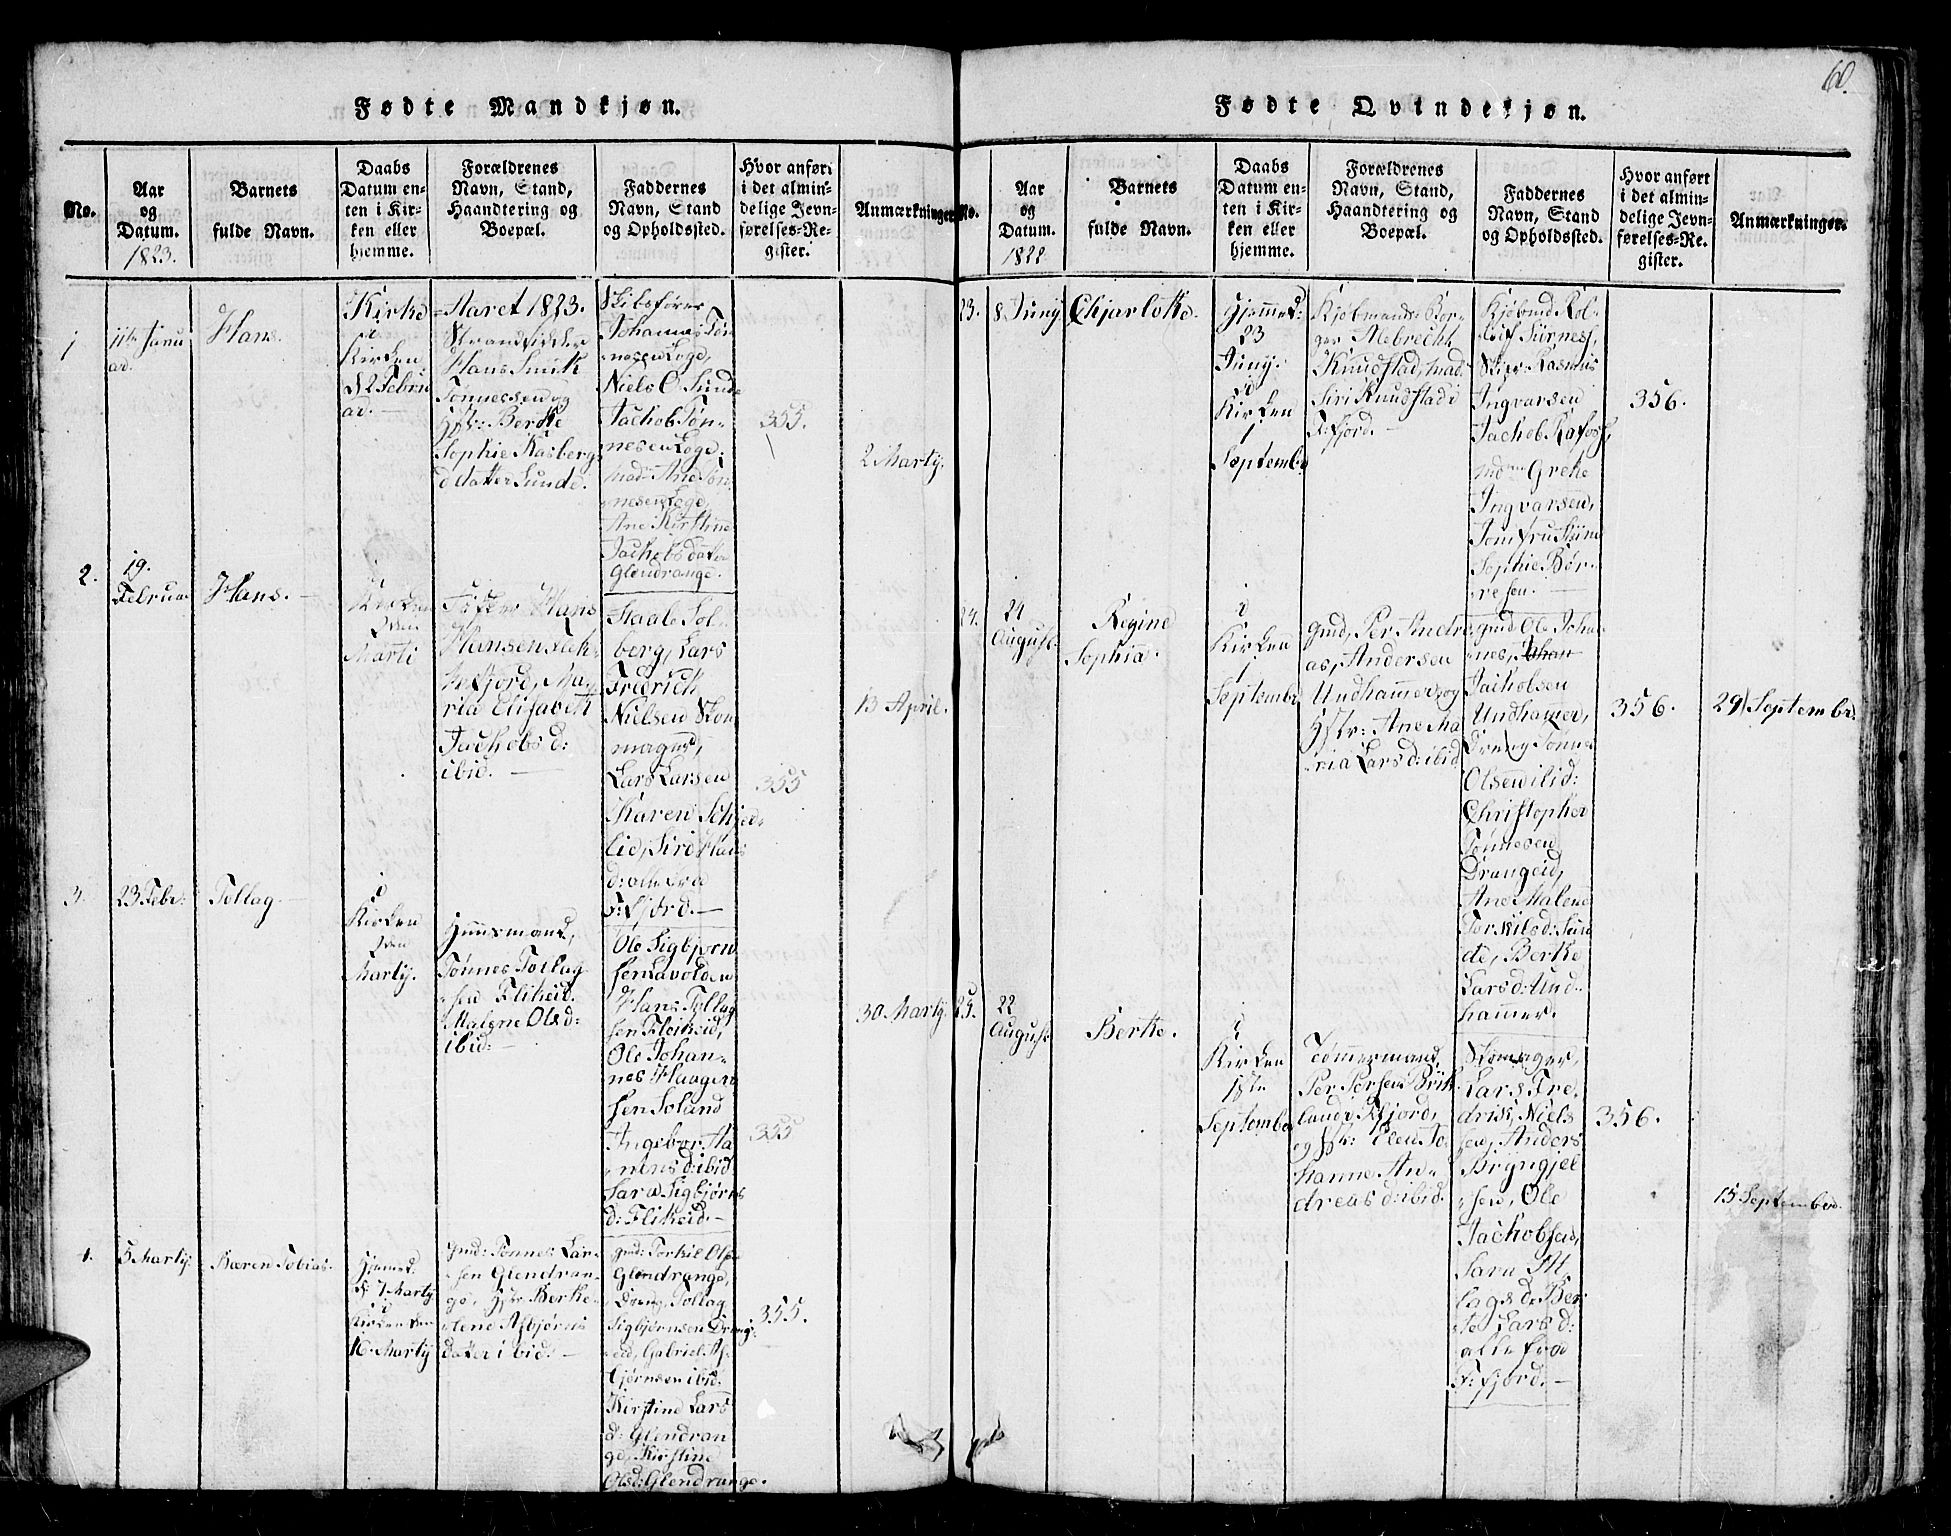 60.
Fødte Mandkjøn.
No.
Aar
og
Datum.
1823.
Barnets
fulde Navn.
Daabs
Datum en-
ten i Kir-
ken eller
hjemme.
Forældrenes
Navn, Stand,
Haandtering og
Boepæl.
Faddernes
Navn, Stand
og Opholdssted.
Hvor anført
i det almin-
delige Jevn-
førelses-Re-
gister.
Anmærkninger.
Aaret 1823.
1
11te Janu
ar.
Hans.
Kirke
i
Kirken
d 2 Febru
ar.
Strandsidder
Hans Smith
Tønnessen og
Hstr: Berthe
Sophie Rasberg
datter Sunde.
Skibsfører
Johannes Tøn-
nesen Loge,
Niels O Sunde
Jachob Tøn-
nesen Loge.
Mad: Ane Tøn
nesen Loge,
Ane Kirstine
Jachobsdatter
Glendrange.
355.
2 Marty.
2.
19.
Februar
Hans.
i
Kirken
den
Marti
Hans
Hansen
fjord, Ma
ria Elisabeth
Jachobs d:
ibid.
Staale Sol-
berg, Lars
Fredrich
Nielsen Skom
mager,
Lars Larsen
Karen
lid, Siri Hans
d: alle fra
F:fjord.
355
13 April.
3.
23 Febr:
Tollag.
i
Kirken
den
Marty.
Huusmand,
Tønnes Tollag
sen Flikeid.
Malene Ols d:
ibid:
Ole Sigbjørn
sen Lavolden
Hans Tollag
sen Flikeid,
Ole Johan-
nes Haagen
sen Soland
Ingebor Aa
nens d: ibid
Sara Sigbjørns
d: Flikeid.
355
30 Marty.
4.
5 Marty.
Søren Tobias.
Hjemed:
d: 7 Marty
i
Kirken den
16. Marty
gmd: Tønnes Lar-
sen Glendran-
ge, Hstr Berthe-
lene Asbjørns
datter ibid.
gmd: Torkil Olsen
Glendrange,
Dreng Tollag
Sigbjørnsen Drang-
eid, Gabriel As-
bjørnsen ibid.
Kirstine Lars
d: Glendran
ge, Kirstine
Olsd: Glendrange.
355.
Fødte Qvindekjøn.
No.
Aar
og
Datum.
1822
Barnets
fulde Navn.
Daabs
Datum en-
ten i Kir-
ken eller
hjemme.
Forældrenes
Navn, Stand,
Haandtering og
Boepæl.
Faddernes
Navn, Stand
og Opholdssted.
Hvor anført
i det almin-
delige Jevn-
førelses-Re-
gister.
Anmærkninger.
23.
8 Juny
Chjarlotte.
Hjemmed:
23
Juny.
i
Kirken
1
September
Kjøbmand Bor-
ger Alebrecht
Knudstad, Mad:
Siri Knudstad i
F:fjord.
Kjøbmd Rol-
leif Sørnes,
Skipr Rasmus
Ingvarsen
Jachob Rafoss,
Md: Grethe
Ingvarsen,
Jomfru Stine
Sophie Bør-
resen.
356.
24.
24
August
Regine
Sophia.
i
Kirken
1
September
gmd, Per Andre
as, Andersen
Undhammer og
Hstr: Ane Ma
ria Lars d: ibid
gmd, Ole Joha-
nes, Johan
Jacholsen
Undhamer,
Dreng Tønnes
Olsen ibid:
Christopher
Tønnesen
Drangeid,
Ane Malene
Torkils d: Sun
de, Berthe
Lars d: Und-
hammer.
356.
29 September.
25.
22
August
Berthe.
i
Kirken
1ste
September
Tømmermand
Per Persen Birke
land i F:fjord,
og Hstr: Elen Jo
hanne An-
dreas d: ibid.
Skomager,
Lars Fre-
drik Niels
sen, Anders
Bryngjel
sen, Ole
Jachobsen,
Sara
lags d: Ber
te Lars d:
alle fra
F:fjord.
356.
15 September.